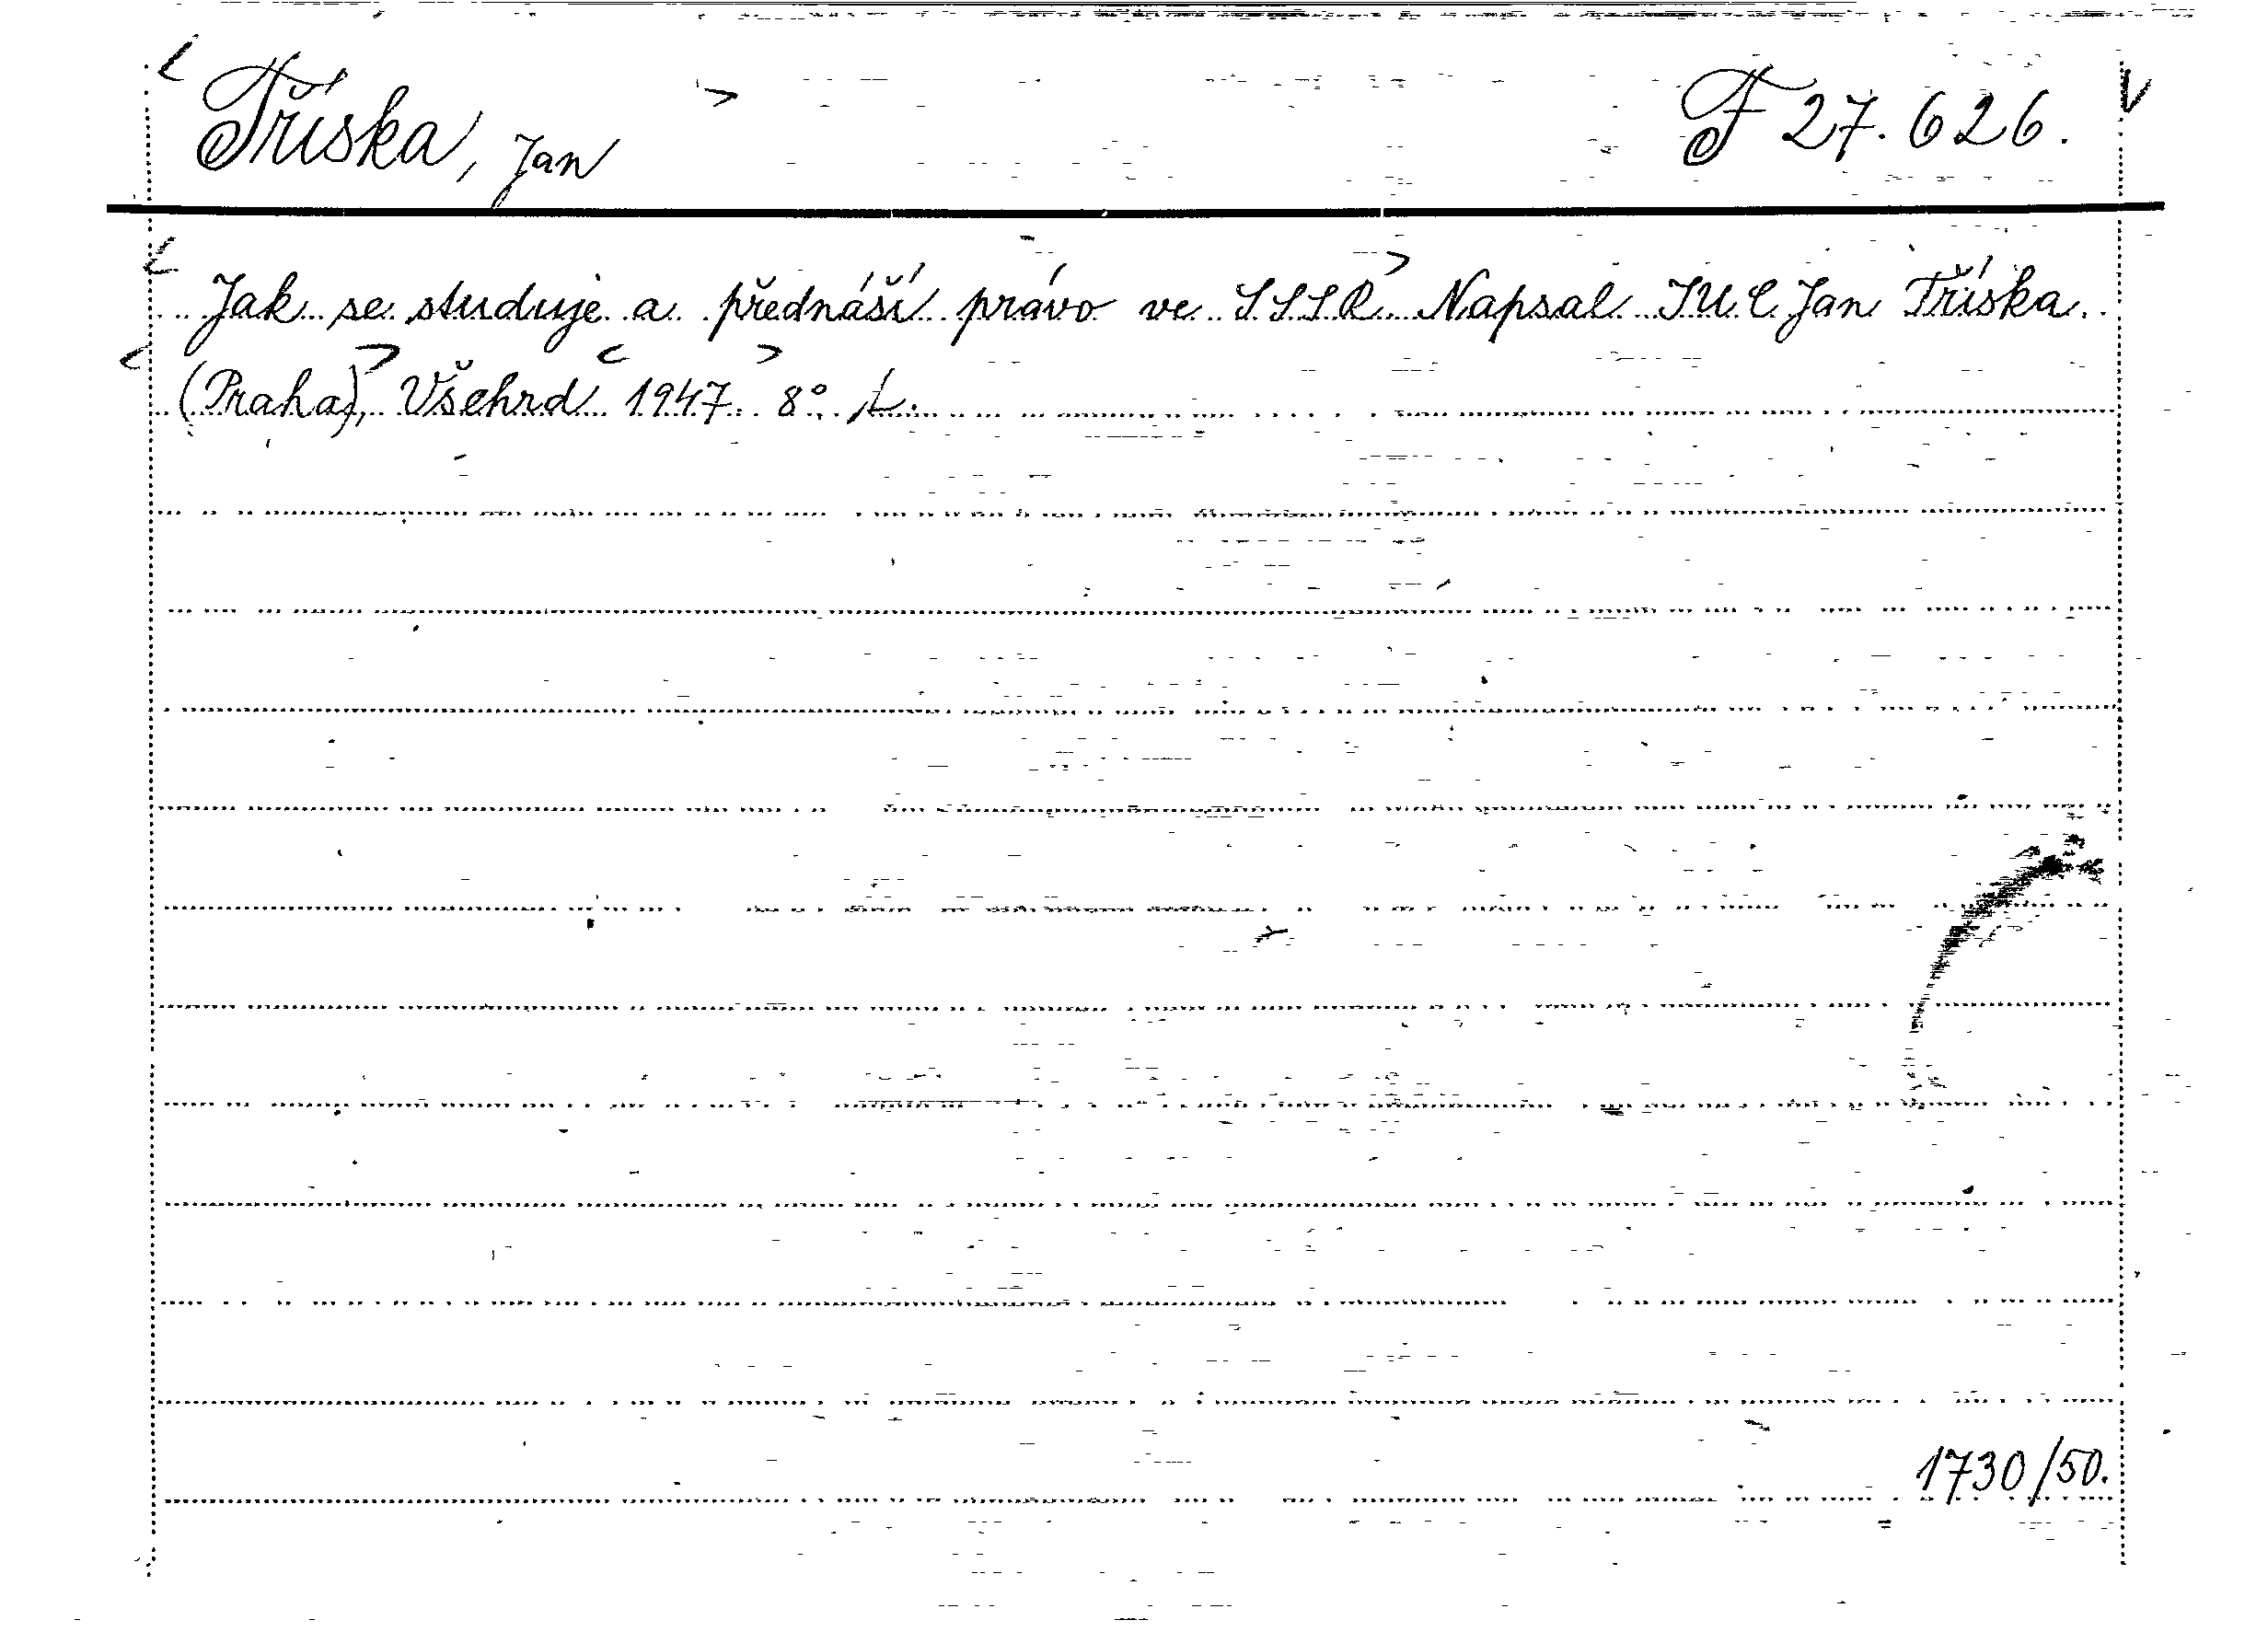 Tříska, Jan F 27.626.
Jak se studuje a přednáší právo ve SSSR. Napsal JUC Jan Tříska.
(Praha), Všehrd 1947. 8°.
1730/50.